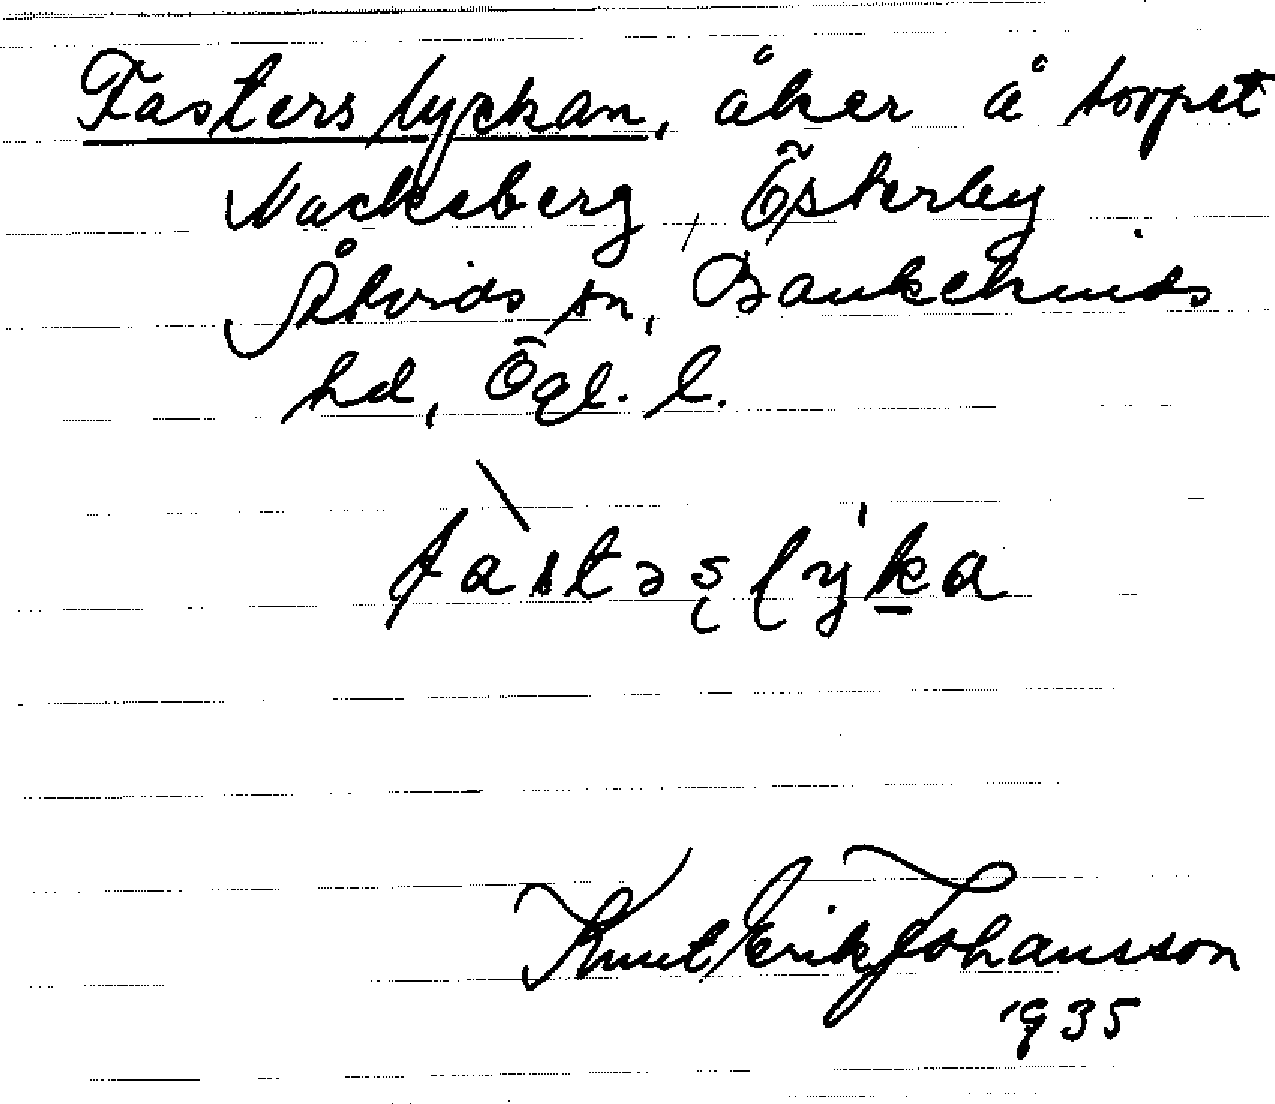 Fasterslyckan, åker å torpet
Nacksberg, Österby
Åtvids sn, Bankekinds
hd, Ögl. l.
fàstəʂlyka
Knut Erik Johansson
1935